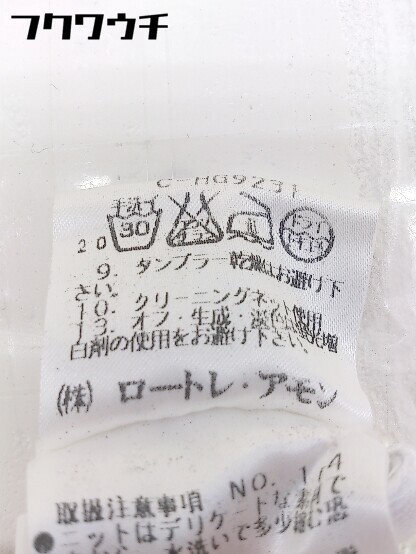 フクワウチ
C-HG9231
手洗イ
30
エンソ
サラシ
ドライ
20
9. タンブラー乾燥はお避け下
さい。
10. クリーニングネット使用
13. オフ・生成・淡色は蛍光増
白剤の使用をお避け下さい。
(株) ロートレ・アモン
NO. 1/4
取扱注意事項
●ニットはデリケートな素材で
水洗いで多少